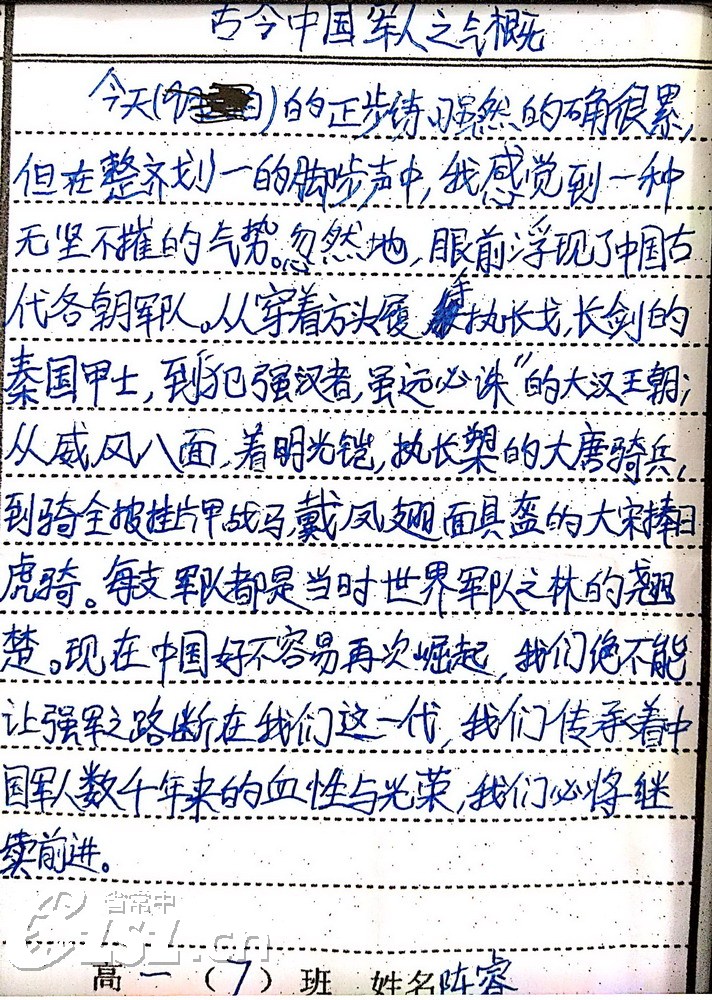 古今中国军人之气概
今天( )的正步练习虽然的确很累,
但在整齐划一的脚步声中,我感觉到一种
无坚不摧的气势。忽然地,眼前浮现了中国古
代各朝军队。从穿着方头履 手执长戈,长剑的
秦国甲士,到“犯强汉者,虽远必诛”的大汉王朝;
从威风八面,着明光铠,执长槊的大唐骑兵,
到骑全披挂片甲战马,戴凤翅面具盔的大宋捧日
虎骑。每支军队都是当时世界军队之林的翘
楚。现在中国好不容易再次崛起,我们绝不能
让强军之路断在我们这一代,我们传承着中
国军人数千年来的血性与光荣,我们必将继
续前进。
省常中
CZSZ.cn
高一(7)班 姓名 陈睿